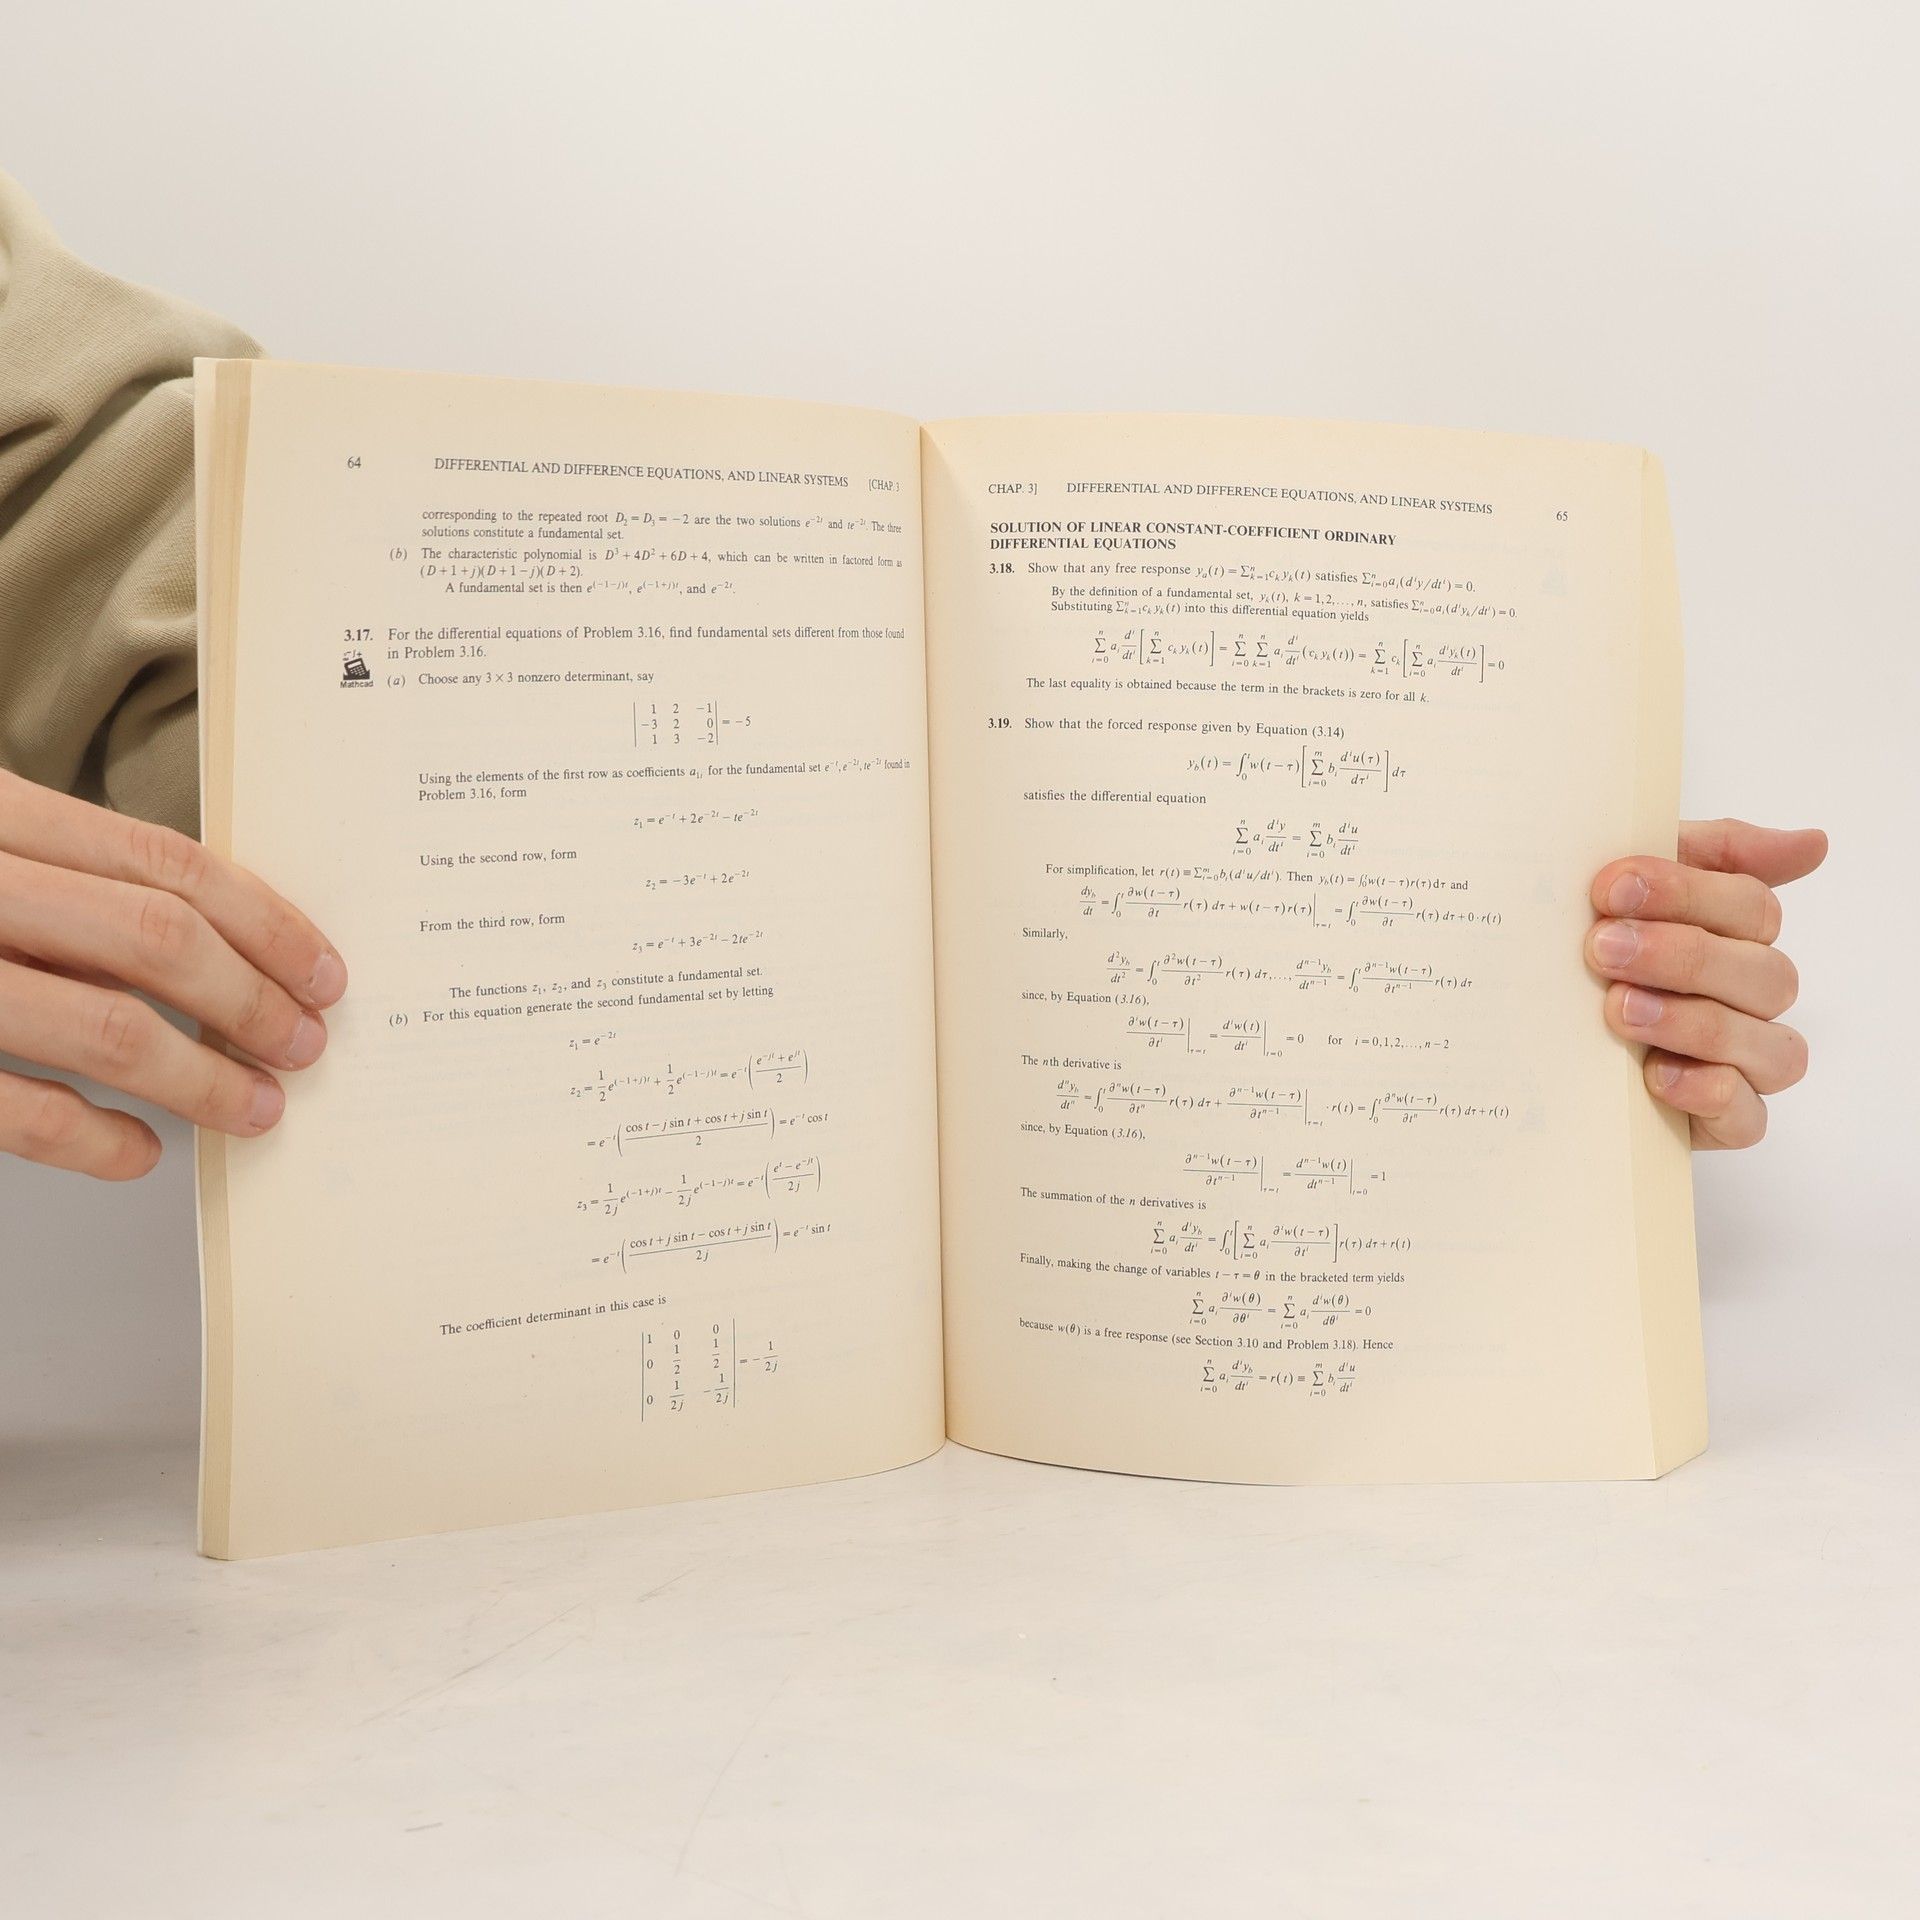 64 DIFFERENTIAL AND DIFFERENCE EQUATIONS, AND LINEAR SYSTEMS [CHAP. 3
corresponding to the repeated root D₂ = D₃ = −2 are the two solutions e^{−2t} and te^{−2t}. The three
solutions constitute a fundamental set.
(b) The characteristic polynomial is D³ + 4D² + 6D + 4, which can be written in factored form as
(D + 1 + j)(D + 1 − j)(D + 2).
A fundamental set is then e^{(−1−j)t}, e^{(−1+j)t}, and e^{−2t}.
3.17. For the differential equations of Problem 3.16, find fundamental sets different from those found
in Problem 3.16.
Mathcad
(a) Choose any 3 × 3 nonzero determinant, say
| 1 2 −1 |
| −3 2 0 | = −5
| 1 3 −2 |
Using the elements of the first row as coefficients a_{1i} for the fundamental set e^{−t}, e^{−2t}, te^{−2t} found in
Problem 3.16, form
z₁ = e^{−t} + 2e^{−2t} − te^{−2t}
Using the second row, form
z₂ = −3e^{−t} + 2e^{−2t}
From the third row, form
z₃ = e^{−t} + 3e^{−2t} − 2te^{−2t}
The functions z₁, z₂, and z₃ constitute a fundamental set.
(b) For this equation generate the second fundamental set by letting
z₁ = e^{−2t}
z₂ = 1/2 e^{(−1+j)t} + 1/2 e^{(−1−j)t} = e^{−t}((e^{−jt} + e^{jt})/2)
= e^{−t}((cos t − j sin t + cos t + j sin t)/2) = e^{−t} cos t
z₃ = 1/2j e^{(−1+j)t} − 1/2j e^{(−1−j)t} = e^{−t}((e^{t} − e^{−jt})/2j)
= e^{−t}((cos t + j sin t − cos t + j sin t)/2j) = e^{−t} sin t
The coefficient determinant in this case is
| 1 0 0 |
| 0 1/2 1/2 | = − 1/2j
| 0 1/2j −1/2j |
CHAP. 3] DIFFERENTIAL AND DIFFERENCE EQUATIONS, AND LINEAR SYSTEMS 65
SOLUTION OF LINEAR CONSTANT-COEFFICIENT ORDINARY
DIFFERENTIAL EQUATIONS
3.18. Show that any free response y_a(t) = Σ_{k=1}^{n} c_k y_k(t) satisfies Σ_{i=0}^{n} a_i(d^i y/dt^i) = 0.
By the definition of a fundamental set, y_k(t), k = 1,2,..., n, satisfies Σ_{i=0}^{n} a_i(d^i y_k/dt^i) = 0.
Substituting Σ_{k=1}^{n} c_k y_k(t) into this differential equation yields
Σ_{i=0}^{n} a_i d^i/dt^i [Σ_{k=1}^{n} c_k y_k(t)] = Σ_{i=0}^{n} Σ_{k=1}^{n} a_i d^i/dt^i (c_k y_k(t)) = Σ_{k=1}^{n} c_k [Σ_{i=0}^{n} a_i d^i y_k(t)/dt^i] = 0
The last equality is obtained because the term in the brackets is zero for all k.
3.19. Show that the forced response given by Equation (3.14)
y_b(t) = ∫_0^t w(t − τ)[Σ_{i=0}^{m} b_i d^i u(τ)/dτ^i] dτ
satisfies the differential equation
Σ_{i=0}^{n} a_i d^i y/dt^i = Σ_{i=0}^{m} b_i d^i u/dt^i
For simplification, let r(t) ≡ Σ_{i=0}^{m} b_i(d^i u/dt^i). Then y_b(t) = ∫_0^t w(t − τ)r(τ) dτ and
dy_b/dt = ∫_0^t ∂w(t − τ)/∂t r(τ) dτ + w(t − τ)r(τ)|_{τ=t} = ∫_0^t ∂w(t − τ)/∂t r(τ) dτ + 0·r(t)
Similarly,
d²y_b/dt² = ∫_0^t ∂²w(t − τ)/∂t² r(τ) dτ,..., d^{n−1}y_b/dt^{n−1} = ∫_0^t ∂^{n−1}w(t − τ)/∂t^{n−1} r(τ) dτ
since, by Equation (3.16),
∂^i w(t − τ)/∂t^i |_{τ=t} = d^i w(t)/dt^i |_{t=0} = 0 for i = 0,1,2,..., n − 2
The nth derivative is
d^n y_b/dt^n = ∫_0^t ∂^n w(t − τ)/∂t^n r(τ) dτ + ∂^{n−1}w(t − τ)/∂t^{n−1} |_{τ=t} · r(t) = ∫_0^t ∂^n w(t − τ)/∂t^n r(τ) dτ + r(t)
since, by Equation (3.16),
∂^{n−1}w(t − τ)/∂t^{n−1} |_{τ=t} = d^{n−1}w(t)/dt^{n−1} |_{t=0} = 1
The summation of the n derivatives is
Σ_{i=0}^{n} a_i d^i y_b/dt^i = ∫_0^t [Σ_{i=0}^{n} a_i ∂^i w(t − τ)/∂t^i] r(τ) dτ + r(t)
Finally, making the change of variables t − τ = θ in the bracketed term yields
Σ_{i=0}^{n} a_i ∂^i w(θ)/∂θ^i = Σ_{i=0}^{n} a_i d^i w(θ)/dθ^i = 0
because w(θ) is a free response (see Section 3.10 and Problem 3.18). Hence
Σ_{i=0}^{n} a_i d^i y_b/dt^i = r(t) ≡ Σ_{i=0}^{m} b_i d^i u/dt^i